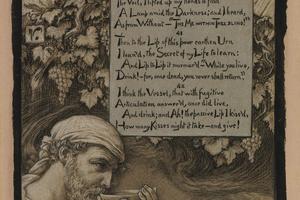 The Veil, I lifted up my hands to find
A Lamp amid the Darkness; and I heard,
As from Without—"The Me within Thee blind!"
Then to the Lip of this poor earthen Urn
I lean'd, the Secret of my Life to learn:
And Lip to Lip it murmur'd—"While you live,
Drink!—for, once dead, you never shall return."
I think the Vessel, that with fugitive
Articulation answer'd, once did live,
And drink; and Ah! the passive Lip I kiss'd,
How many Kisses might it take—and give!